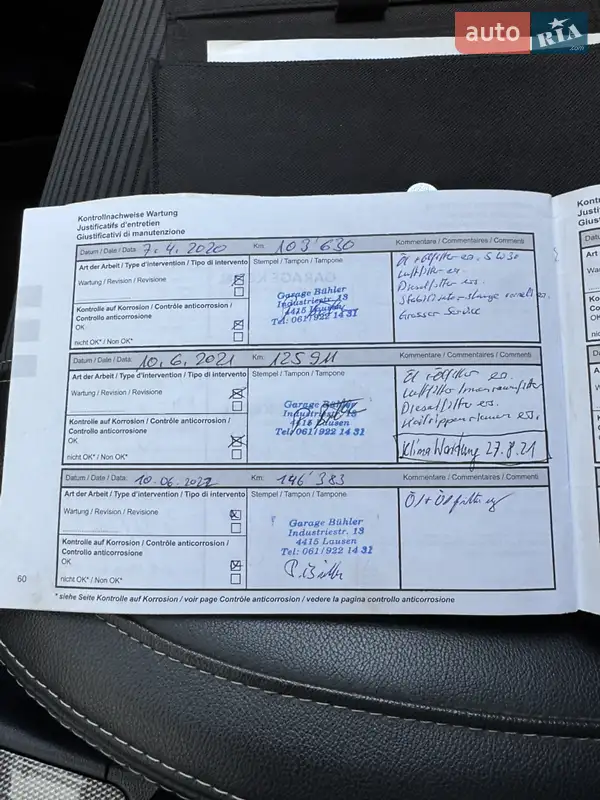 auto RIA .com
Kontrollnachweise Wartung
Justificatifs d'entretien
Giustificativi di manutenzione
Datum / Date / Data: 7.4.2020 Km: 103'630 Kommentare / Commentaires / Commenti
Art der Arbeit / Type d'intervention / Tipo di intervento Stempel / Tampon / Tampone
Wartung / Revision / Revisione
Kontrolle auf Korrosion / Contrôle anticorrosion /
Controllo anticorrosione
OK
nicht OK* / Non OK*
Garage Bühler
Industriestr. 13
4415 Lausen
Tel: 061/922 14 31
Öl + Ölfilter ers. 5W30
Luftfilter ers.
Dieselfilter ers.
Grosser Service
Datum / Date / Data: 10.6.2021 Km: 125'911 Kommentare / Commentaires / Commenti
Art der Arbeit / Type d'intervention / Tipo di intervento Stempel / Tampon / Tampone
Wartung / Revision / Revisione
Kontrolle auf Korrosion / Contrôle anticorrosion /
Controllo anticorrosione
OK
nicht OK* / Non OK*
Garage Bühler
Industriestr. 13
4415 Lausen
Tel: 061/922 14 31
Öl + Ölfilter ers.
Luftfilter Innenraumfilter
Dieselfilter ers.
Keilrippenriemen ers.
Klima Wartung 27.8.21
Datum / Date / Data: 10.06.2022 Km: 146'383 Kommentare / Commentaires / Commenti
Art der Arbeit / Type d'intervention / Tipo di intervento Stempel / Tampon / Tampone
Wartung / Revision / Revisione
Kontrolle auf Korrosion / Contrôle anticorrosion /
Controllo anticorrosione
OK
nicht OK* / Non OK*
Garage Bühler
Industriestr. 13
4415 Lausen
Tel: 061/922 14 31
Öl + Ölfilter
60
* siehe Seite Kontrolle auf Korrosion / voir page Contrôle anticorrosion / vedere la pagina controllo anticorrosione